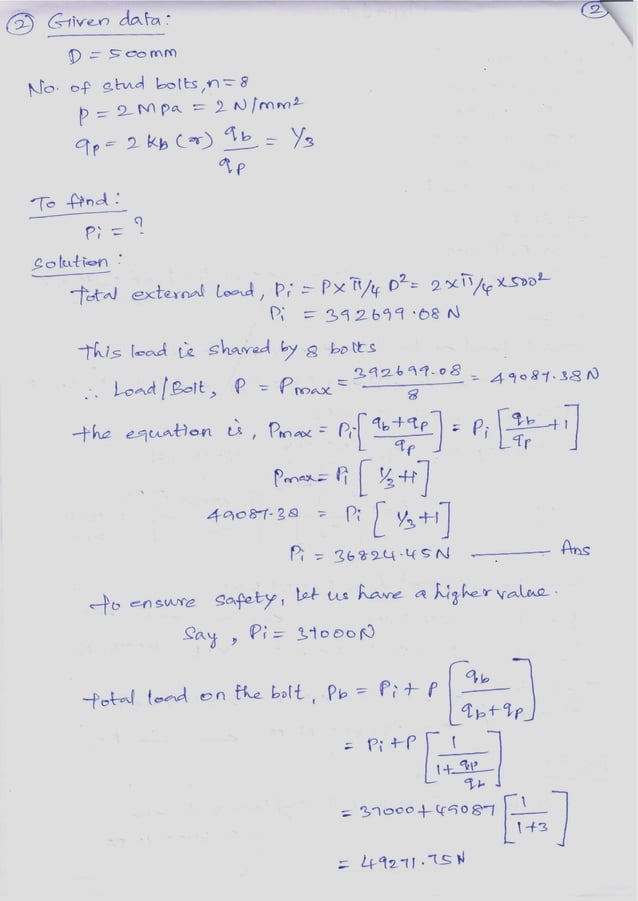 ② Given data: ②
D = 500mm
No. of stud bolts, n = 8
p = 2 Mpa = 2 N/mm2
qp = 2 kb (or) qb/qp = 1/3
To find:
Pi = ?
Solution:
Total external load, Pi = P x π/4 D² = 2 x π/4 x 500²
Pi = 392699.08 N
This load is shared by 8 bolts
∴ Load/Bolt, P = Pmax = 392699.08/8 = 49087.38 N
the equation is, Pmax = Pi [qb+qp/qp] = Pi [qb/qp +1]
Pmax = Pi [1/3 +1]
49087.38 = Pi [1/3 +1]
Pi = 36824.45N — Ans
to ensure safety, let us have a higher value.
Say, Pi = 37000N
total load on the bolt, Pb = Pi + P [qb/qb+qp]
= Pi + P [1/1+qp/qb]
= 37000 + 49087 [1/1+3]
= 49271.75N